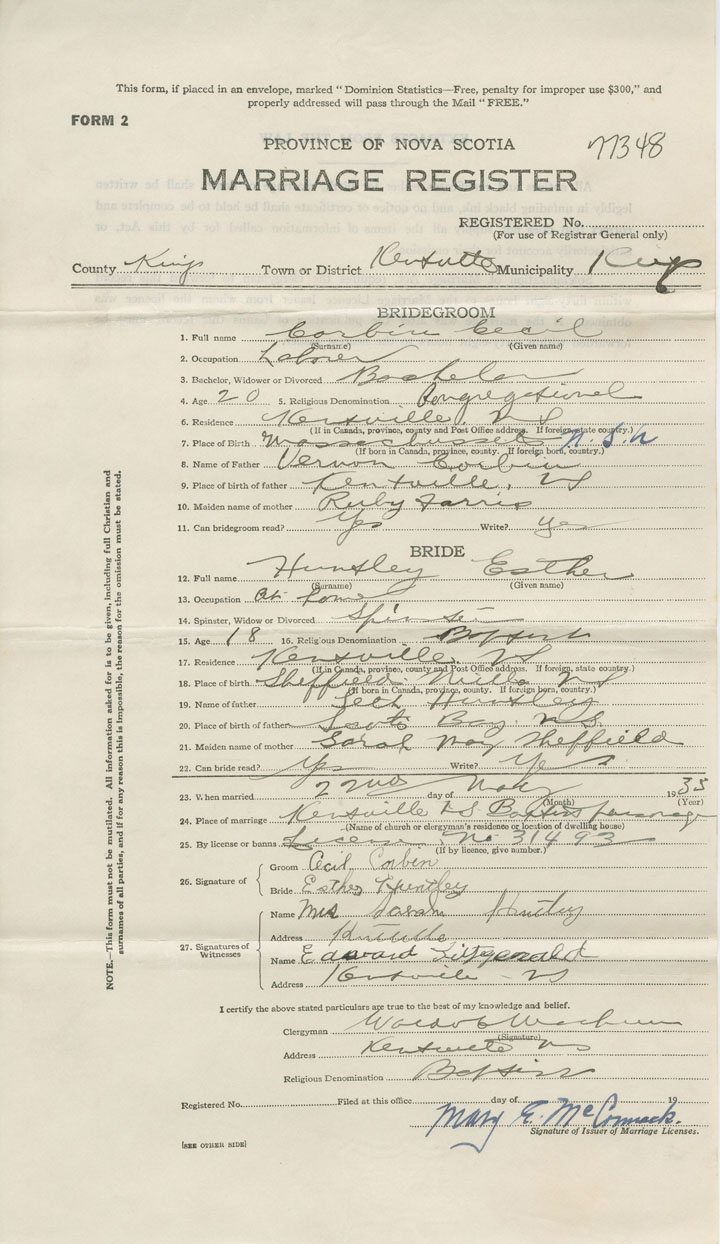 This form, if placed in an envelope, marked "Dominion Statistics—Free, penalty for improper use $300," and
properly addressed will pass through the Mail "FREE."
FORM 2
PROVINCE OF NOVA SCOTIA
77348
MARRIAGE REGISTER
REGISTERED No.
(For use of Registrar General only)
County Kings Town or District Kentville Municipality Kings
BRIDEGROOM
1. Full name Corbin Cecil
(Surname) (Given name)
2. Occupation Laborer
3. Bachelor, Widower or Divorced Bachelor
4. Age 20 5. Religious Denomination Congregational
6. Residence Kentville, NS
(If in Canada, province, county and Post Office address. If foreign, state country.)
7. Place of Birth Massachussets
(If born in Canada, province, county. If foreign born, country.)
8. Name of Father Vernon Corbin
9. Place of birth of father Kentville, NS
10. Maiden name of mother Ruby Farris
11. Can bridegroom read? Yes Write? Yes
BRIDE
12. Full name Huntley Esther
(Surname) (Given name)
13. Occupation At home
14. Spinster, Widow or Divorced Spinster
15. Age 18 16. Religious Denomination Baptist
17. Residence Kentville, NS
(If in Canada, province, county and Post Office address. If foreign, state country.)
18. Place of birth Sheffield Mills NS
(If born in Canada, province, county. If foreign born, country.)
19. Name of father Huntley
20. Place of birth of father Scots Bay, N.S.
21. Maiden name of mother Sarah May Sheffield
22. Can bride read? Yes Write? Yes
23. When married 22nd day of May 1935
(Month) (Year)
24. Place of marriage Kentville N.S. Baptist parsonage
(Name of church or clergyman's residence or location of dwelling house)
25. By license or banns License No 31493
(If by licence, give number.)
26. Signature of
Groom Cecil Corbin
Bride Esther Huntley
27. Signatures of Witnesses
Name Mrs Sarah Huntley
Address Kentville
Name Edward Fitzgerald
Address Kentville NS
I certify the above stated particulars are true to the best of my knowledge and belief.
Clergyman
(Signature)
Address Kentville NS
Religious Denomination Baptist
Registered No. Filed at this office day of 19
Mary E. McCormack.
Signature of Issuer of Marriage Licenses.
[SEE OTHER SIDE]
NOTE.—This form must not be mutilated. All information asked for is to be given, including full Christian and
surnames of all parties, and if for any reason this is impossible, the reason for the omission must be stated.